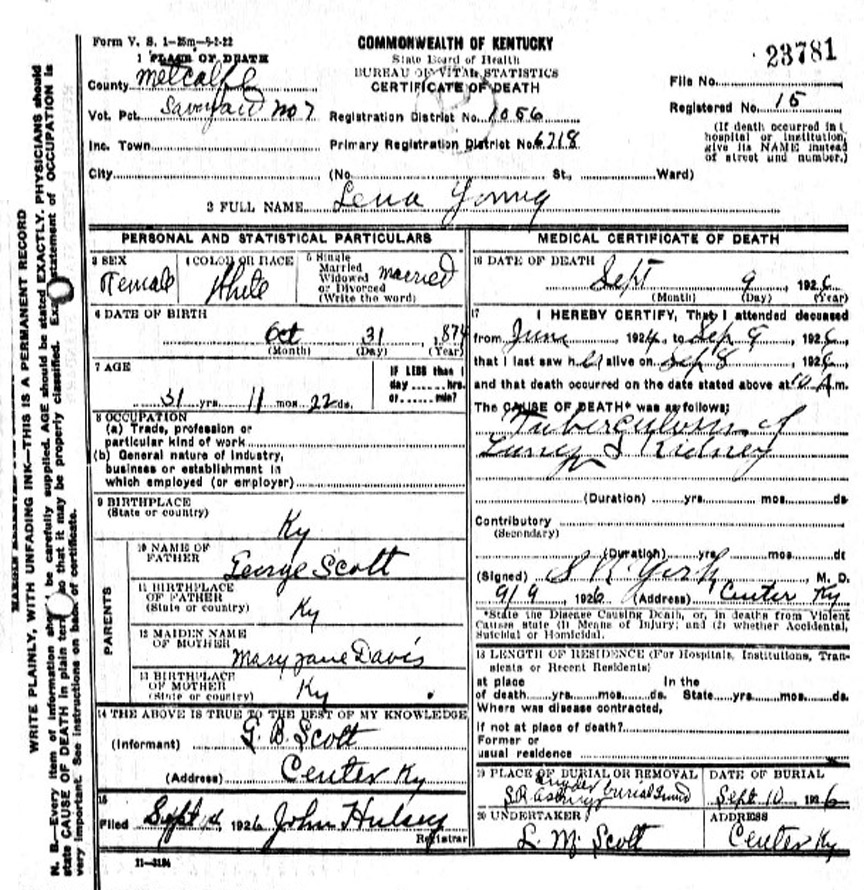 Form V. S. 1-25m-9-2-22
COMMONWEALTH OF KENTUCKY
State Board of Health
BUREAU OF VITAL STATISTICS
CERTIFICATE OF DEATH
23781
1 PLACE OF DEATH
County Metcalfe
File No.
Vot. Pct. Savoyard No 7
Registration District No. 1056
Registered No. 15
Inc. Town
Primary Registration District No. 6718
(If death occurred in a hospital or institution, give its NAME instead of street and number.)
City (No. St., Ward)
2 FULL NAME Lena Young
PERSONAL AND STATISTICAL PARTICULARS
3 SEX
Female
4 COLOR OR RACE
White
5 Single
Married
Widowed
or Divorced
(Write the word)
Married
6 DATE OF BIRTH
Oct 31 1874
(Month) (Day) (Year)
7 AGE
31 yrs. 11 mos. 22 ds.
IF LESS than 1
day ...... hrs.
or ...... min?
8 OCCUPATION
(a) Trade, profession or
particular kind of work
(b) General nature of industry,
business or establishment in
which employed (or employer)
9 BIRTHPLACE
(State or country)
Ky
PARENTS
10 NAME OF
FATHER
George Scott
11 BIRTHPLACE
OF FATHER
(State or country)
Ky
12 MAIDEN NAME
OF MOTHER
Mary Jane Davis
13 BIRTHPLACE
OF MOTHER
(State or country)
Ky
14 THE ABOVE IS TRUE TO THE BEST OF MY KNOWLEDGE
(Informant) G. B. Scott
(Address) Center Ky
15
Filed Sept 14, 1926 John Hulsey
Registrar
11-3184
MEDICAL CERTIFICATE OF DEATH
16 DATE OF DEATH
Sept 9, 1926
(Month) (Day) (Year)
17 I HEREBY CERTIFY, That I attended deceased
from June 1924, to Sep 9 1926,
that I last saw her alive on Sep 8 1926,
and that death occurred on the date stated above at 10 A m.
The CAUSE OF DEATH* was as follows:
Tuberculosis of
Lung & Kidney
(Duration) yrs. mos. ds
Contributory
(Secondary)
(Duration) yrs. mos. ds
(Signed) S R York, M. D.
9/9 1926 (Address) Center Ky
*State the Disease Causing Death, or, in deaths from Violent
Causes state (1) Means of Injury; and (2) whether Accidental,
Suicidal or Homicidal.
18 LENGTH OF RESIDENCE (For Hospitals, Institutions, Tran-
sients or Recent Residents)
at place In the
of death yrs. mos. ds. State yrs. mos. ds.
Where was disease contracted,
if not at place of death?
Former or
usual residence
19 PLACE OF BURIAL OR REMOVAL
burial
DATE OF BURIAL
Sept. 10 1926
20 UNDERTAKER
L. M. Scott
ADDRESS
Center Ky
WRITE PLAINLY, WITH UNFADING INK—THIS IS A PERMANENT RECORD
N. B.—Every item of information should be carefully supplied. AGE should be stated EXACTLY. PHYSICIANS should
state CAUSE OF DEATH in plain terms so that it may be properly classified. Exact statement of OCCUPATION is
very important. See instructions on back of certificate.